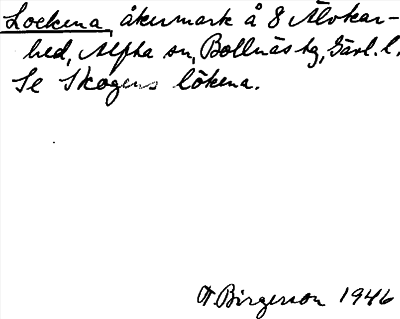 Loekena, åkermark å 8 Älvkar-
hed, Alfta sn, Bollnäs tg, Gävl. l.
Se Skogens lökena.
F. Birgerson 1946